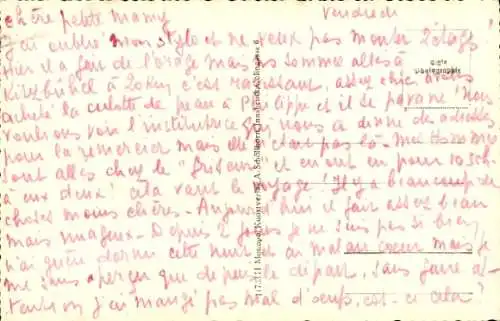 Vendredi
chère petite mamy
j'ai oublié mon stylo et ne veux pas monter 2 étages
hier il a fait de l'orage mais ns sommes allés à
Kitzbühel à 20 km, c'est ravissant, assez chic, avons
acheté la culotte de peau à Philippe et il se pavane. Nous
voulions voir l'institutrice qui nous a donné des adresses
pour la remercier mais elle n'était pas là -
ont allés chez le et en ont eu pour 10 sch
à eux deux! cela vaut le voyage! Il y a beaucoup de
choses moins chères. Aujourd'hui il fait assez beau
mais nuageux. Depuis 2 jours je ne suis pas si bien,
n'ai guère dormi cette nuit ai mal au coeur mais je
me suis aperçue que depuis le départ, sans faire at-
tention j'ai mangé pas mal d'oeufs, est-ce cela?